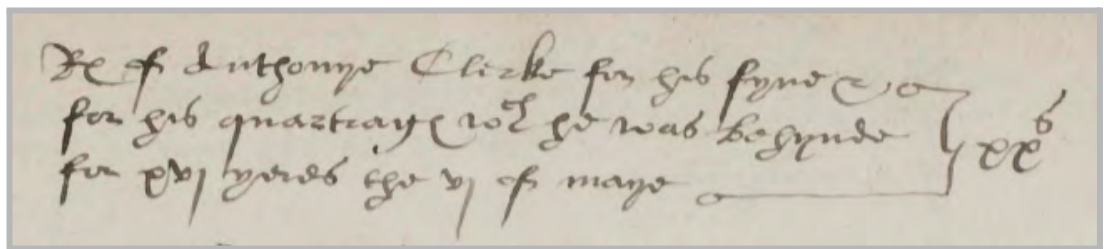 Rc of Anthonye Clerke for his fyne &
for his quartrage wch he was behynde
for xvj yeres the vj of maye xxs